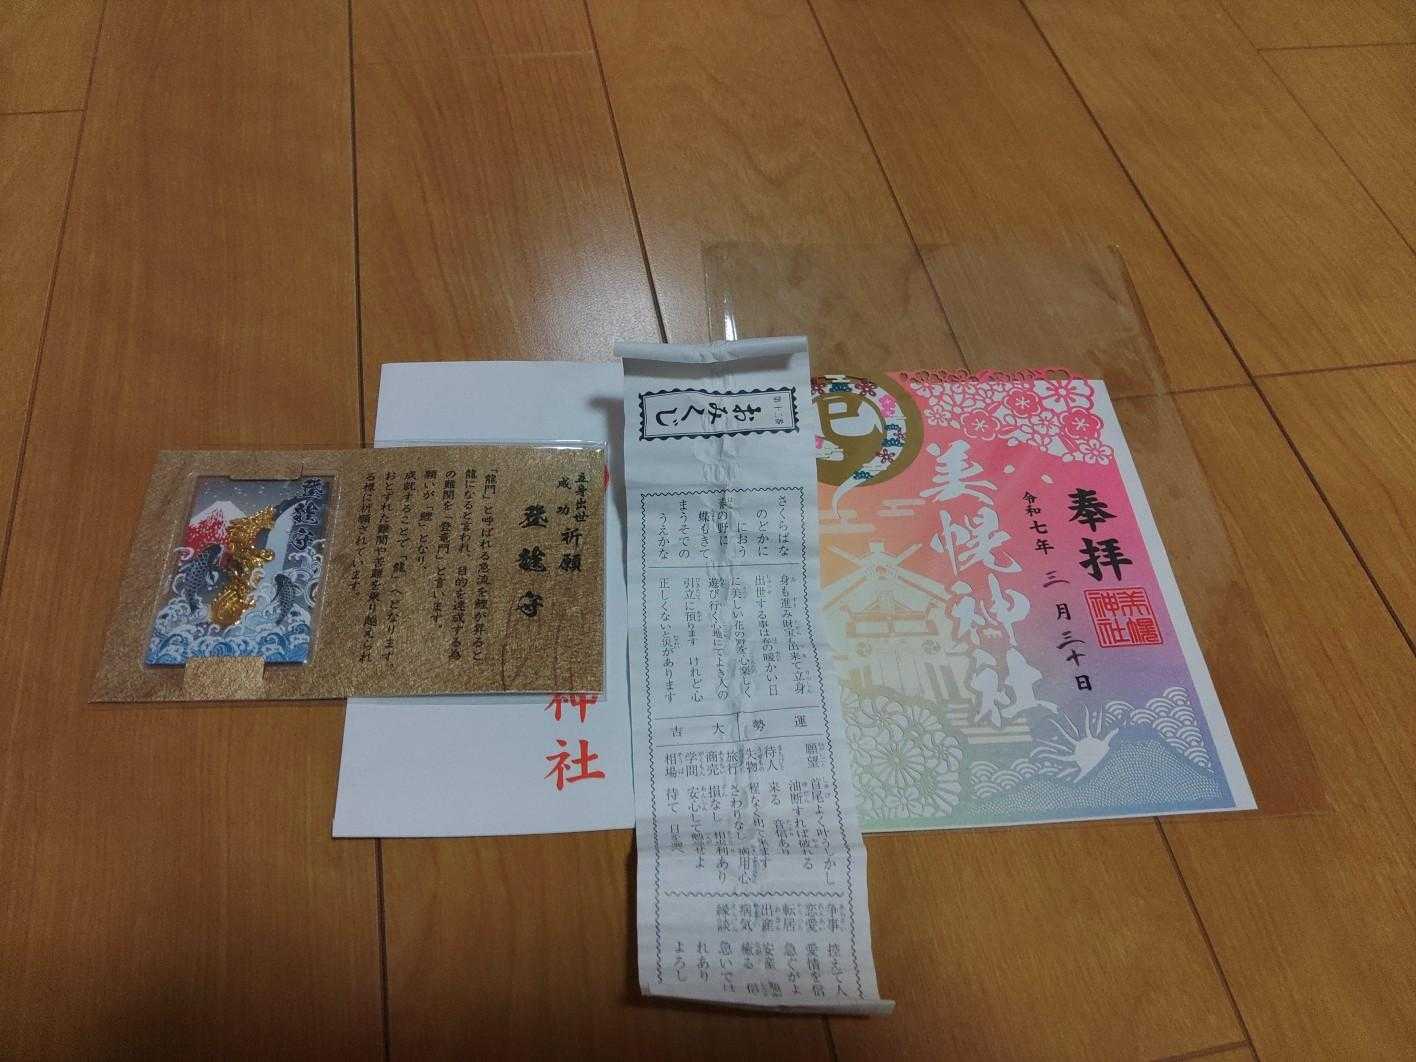 登龍守
立身出世
成功
祈願
登龍守
「龍門」と呼ばれる急流を鯉が昇ると
龍になると言われ、目的を達成する為
の難関を「登竜門」と言います。
願いが「鯉」となり、
成就することで「龍」へとなります
おとずれた難関や苦難を乗り越えられ
る様に祈願されています。
神社
第十二番
おみくじ
さくらばな
のどかに
におう
春の野に
蝶もきて
まうそでの
うえかな
身も進み財宝も出来て立身
出世する事は春の暖かい日
に美しい花の野を心楽しく
遊び行く心地にてよき人の
引立に預ります けれど心
正しくないと災があります
運勢大吉
願望 首尾よく叶うしかし
油断すれば破れる
待人 来る 音信あり
失物 程なく出て来ます
旅行 さわりなし 病用心
商売 損なし 相当利あり
学問 安心して勉せよ
相場 待て
争事 控えて人
恋愛 愛情を信
転居 急ぐがよ
出産 安産
病気 癒る 信
縁談 急いでは
れあり
よろし
巳
奉拝
美幌神社
令和七年
三月三十日
美幌神社